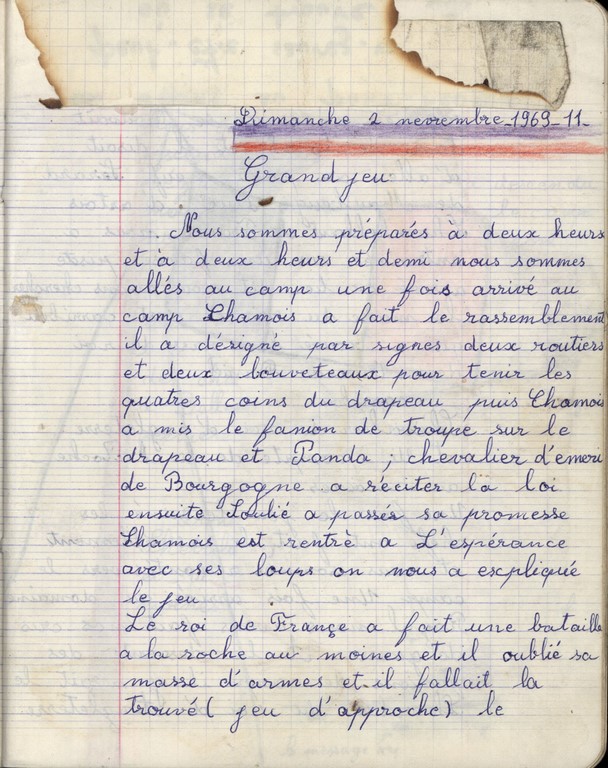 Dimanche 2 novembre 1969-11-
Grand jeu
. Nous sommes préparés à deux heurs
et à deux heurs et demi nous sommes
allés au camp une fois arrivé au
camp Chamois a fait le rassemblement
il a désigné par signes deux routiers
et deux louveteaux pour tenir les
quatres coins du drapeau puis Chamois
a mis le fanion de troupe sur le
drapeau et Panda ; chevalier d'emeri
de Bourgogne a réciter la loi
ensuite Soulié a passés sa promesse
Chamois est rentrè a L'espérance
avec ses loups on nous a escpliquée
le jeu
Le roi de Françe a fait une bataille
a la roche au moines et il oublié sa
masse d'armes et.il fallait la
trouvé ( jeu d'approche) le